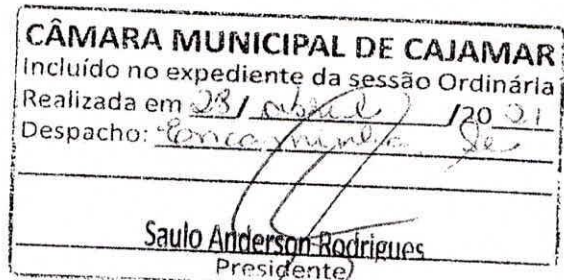 CÂMARA MUNICIPAL DE CAJAMAR
Incluído no expediente da sessão Ordinária
Realizada em 28/ abril /20 21
Despacho: Encaminha-se
Saulo Anderson Rodrigues
Presidente